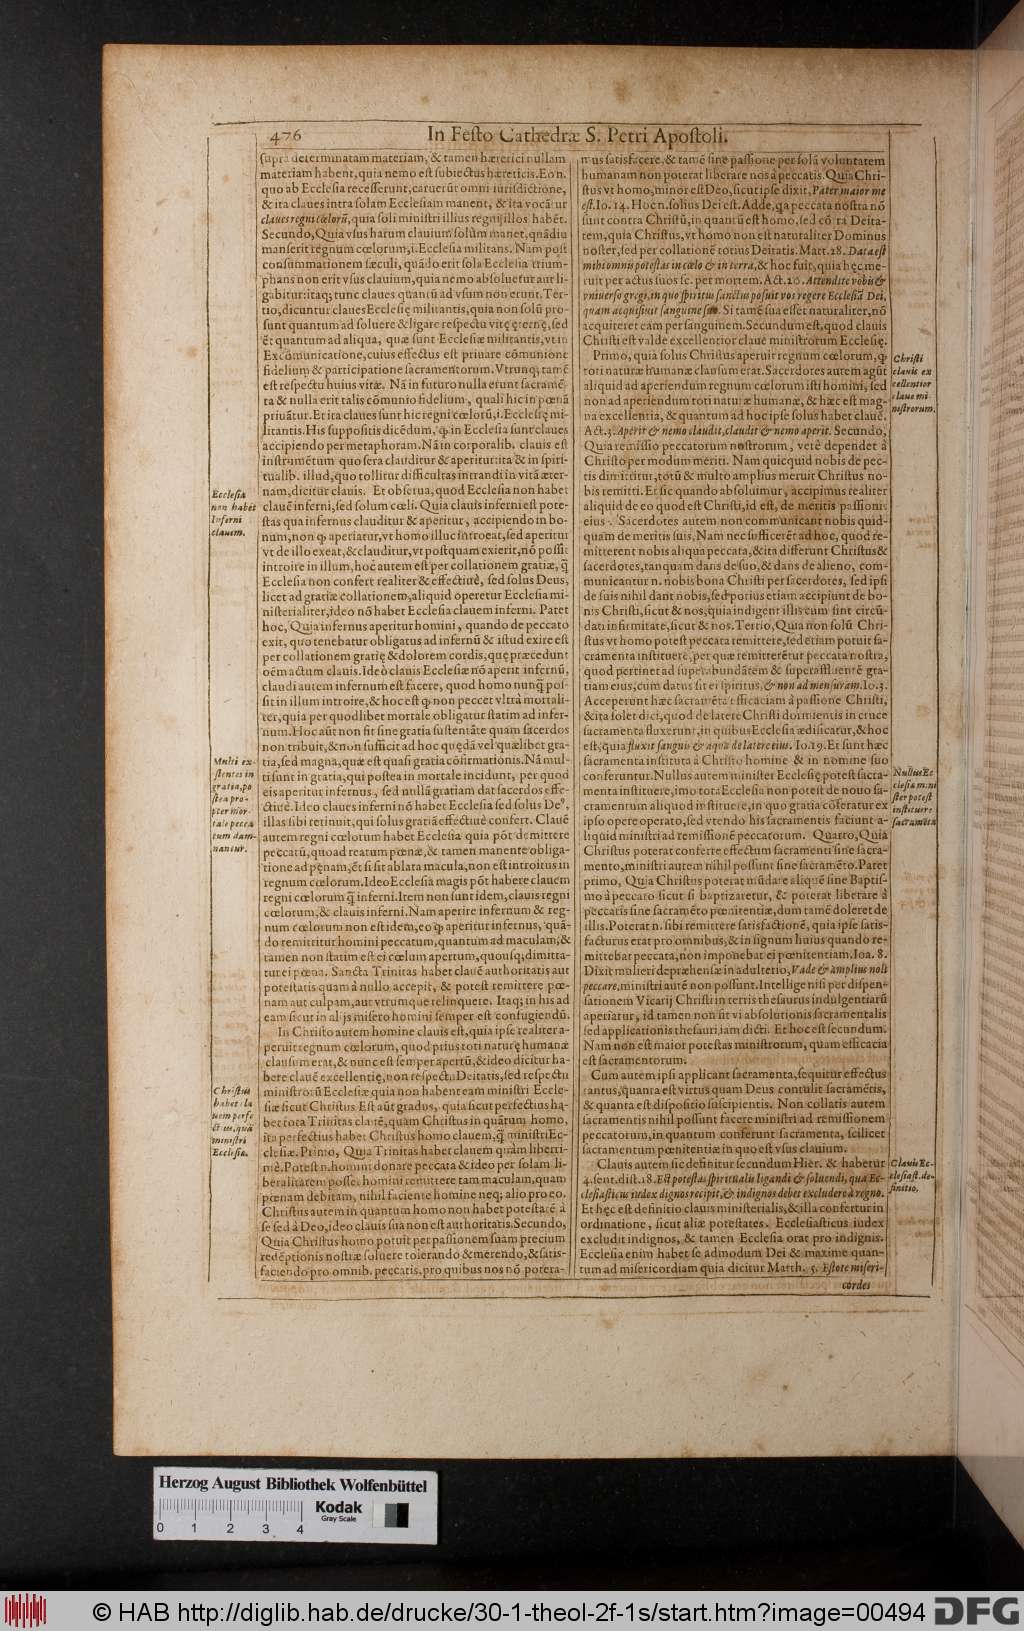 476 In Festo Cathedræ S. Petri Apostoli.
supra determinatam materiam, & tamen hæretici nullam
materiam habent, quia nemo est subiectus hæreticis. Eo n.
quo ab Ecclesia recesserunt, caruerūt omni iurisdictione,
& ita claues intra solam Ecclesiam manent, & ita vocātur
claues regni cœlorū, quia soli ministri illius regni illos habēt.
Secundo, Quia vsus harum clauium solùm manet, quādiu
manserit regnum cœlorum, i. Ecclesia militans. Nam post
consummationem sæculi, quādo erit sola Ecclesia trium-
phans non erit vsus clauium, quia nemo absoluetur aut li-
gabitur: itaq; tunc claues quantū ad vsum non erunt. Ter-
tio, dicuntur claues Ecclesię militantis, quia non solū pro-
sunt quantum ad soluere & ligare respectu vitę ęternę, sed
ēt quantum ad aliqua, quæ sunt Ecclesiæ militantis, vt in
Excōmunicatione, cuius effectus est priuare cōmunione
fidelium & participatione sacramentorum. Vtrunq; tamē
est respectu huius vitæ. Nā in futuro nulla erunt sacramē-
ta & nulla erit talis cōmunio fidelium, quali hic in pœnā
priuātur. Et ita claues sunt hic regni cœlorū, i. Ecclesię mi-
litantis. His suppositis dicēdum, ꝙ in Ecclesia sunt claues
accipiendo per metaphoram. Nā in corporalib. clauis est
instrumētum quo sera clauditur & aperitur: ita & in spiri-
tualib. illud, quo tollitur difficultas intrandi in vitā æter-
nam, dicitur clauis. Et obserua, quod Ecclesia non habet
clauē inferni, sed solum cœli. Quia clauis inferni est pote-
stas qua infernus clauditur & aperitur, accipiendo in bo-
num, non ꝙ aperiatur, vt homo illuc introeat, sed aperitur
vt de illo exeat, & clauditur, vt postquam exierit, nō possit
introire in illum, hoc autem est per collationem gratiæ, q̄
Ecclesia non confert realiter & effectiuè, sed solus Deus,
licet ad gratiæ collationem, aliquid operetur Ecclesia mi-
nisterialiter, ideo nō habet Ecclesia clauem inferni. Patet
hoc, Quia infernus aperitur homini, quando de peccato
exit, quo tenebatur obligatus ad infernū & istud exire est
per collationem gratię & dolorem cordis, quę præcedunt
oēm actum clauis. Ideò clauis Ecclesiæ nō aperit infernū,
claudi autem infernum est facere, quod homo nunq̄ pos-
sit in illum introire, & hoc est ꝙ non peccet vltrà mortali-
ter, quia per quodlibet mortale obligatur statim ad infer-
num. Hoc aūt non fit sine gratia sustentāte quam sacerdos
non tribuit, & non sufficit ad hoc quędā vel quælibet gra-
tia, sed magna, quæ est quasi gratia cōfirmationis. Nā mul-
ti sunt in gratia, qui postea in mortale incidunt, per quod
eis aperitur infernus, sed nullā gratiam dat sacerdos effe-
ctiuè. Ideo claues inferni nō habet Ecclesia sed solus Deꝰ,
illas sibi retinuit, qui solus gratiā effectiuè confert. Clauē
autem regni cœlorum habet Ecclesia quia pōt demittere
peccatū, quoad reatum pœnæ, & tamen manente obliga-
tione ad pęnam, ēt si sit ablata macula, non est introitus in
regnum cœlorum. Ideo Ecclesia magis pōt habere clauem
regni cœlorum q̄ inferni. Item non sunt idem, clauis regni
cœlorum, & clauis inferni. Nam aperire infernum & reg-
num cœlorum non est idem, eo ꝙ aperitur infernus, quā-
do remittitur homini peccatum, quantum ad maculam, &
tamen non statim est ei cœlum apertum, quousq; dimitta-
tur ei pœna. Sancta Trinitas habet clauē authoritatis aut
potestatis quam à nullo accepit, & potest remittere pœ-
nam aut culpam, aut vtrumque relinquere. Itaq; in his ad
eam sicut in alijs misero homini semper est confugiendū.
In Christo autem homine clauis est, quia ipse realiter a-
peruit regnum cœlorum, quod prius toti naturę humanæ
clausum erat, & nunc est semper apertū, & ideo dicitur ha-
bere clauē excellentię, non respectu Deitatis, sed respectu
ministrorū Ecclesiæ quia non habent eam ministri Eccle-
siæ sicut Christus. Est aūt gradus, quia sicut perfectius ha-
bet tota Trinitas clauē, quam Christus in quātum homo,
ita perfectius habet Christus homo clauem, q̄ ministri Ec-
clesiæ. Primo, Quia Trinitas habet clauem quàm liberri-
mè. Potest n. homini donare peccata & ideo per solam li-
beralitatem posset homini remittere tam maculam, quam
pœnam debitam, nihil faciente homine neq; alio pro eo.
Christus autem in quantum homo non habet potestatē à
se sed à Deo, ideo clauis sua non est authoritatis. Secundo,
Quia Christus homo potuit per passionem suam precium
redēptionis nostræ soluere tolerando & merendo, & satis-
faciendo pro omnib. peccatis, pro quibus nos nō potera-
Ecclesia
non habet
Inferni
clauem.
Multi ex-
stentes in
gratia, po
stea pro-
pter mor-
tale pecca
tum dam-
nantur.
Christus
habet cla
uem perfe
ctius, quā
ministri
Ecclesiæ.
mus satisfacere, & tamē sine passione per solā voluntatem
humanam non poterat liberare nos à peccatis. Quia Chri-
stus vt homo, minor est Deo, sicut ipse dixit, Pater maior me
est. Io. 14. Hoc n. solius Dei est. Adde, qa peccata nostra nō
sunt contra Christū, in quantū est homo, sed cōtra Deita-
tem, quia Christus, vt homo non est naturaliter Dominus
noster, sed per collationē totius Deitatis. Matt. 28. Data est
mihi omnis potestas in cœlo & in terra, & hoc fuit, quia hęc me-
ruit per actus suos sc. per mortem. Act. 20. Attendite vobis &
vniuerso gregi, in quo spiritus sanctus posuit vos regere Ecclesiā Dei,
quam acquisiuit sanguine suo. Si tamē sua esset naturaliter, nō
acquireret eam per sanguinem. Secundum est, quod clauis
Christi est valde excellentior clauē ministrorum Ecclesię.
Primo, quia solus Christus aperuit regnum cœlorum, ꝙ
toti naturæ humanæ clausum erat. Sacerdotes autem agūt
aliquid ad aperiendum regnum cœlorum isti homini, sed
non ad aperiendum toti naturæ humanæ, & hæc est mag-
na excellentia, & quantum ad hoc ipse solus habet clauē.
Act. 3. Aperit & nemo claudit, claudit & nemo aperit. Secundo,
Quia remissio peccatorum nostrorum, verè dependet à
Christo per modum meriti. Nam quicquid nobis de pec-
tis dimittitur, totū & multo amplius meruit Christus no-
bis remitti. Et sic quando absoluimur, accipimus realiter
aliquid de eo quod est Christi, id est, de meritis passionis
eius. Sacerdotes autem non communicant nobis quid-
quam de meritis suis. Nam nec sufficerēt ad hoc, quod re-
mitterent nobis aliqua peccata, & ita differunt Christus &
sacerdotes, tanquam dans de suo, & dans de alieno, com-
municantur n. nobis bona Christi per sacerdotes, sed ipsi
de suis nihil dant nobis, sed potius etiam accipiunt de bo-
nis Christi, sicut & nos, quia indigent illis cum sint circū-
dati infirmitate, sicut & nos. Tertio, Quia non solū Chri-
stus vt homo potest peccata remittere, sed etiam potuit sa-
cramenta instituere, per quæ remitterētur peccata nostra,
quod pertinet ad superabundātem & superaffluentē gra-
tiam eius, cum datus sit ei spiritus, & non ad mensuram. Io. 3.
Acceperunt hæc sacramēta efficaciam à passione Christi,
& ita solet dici, quod de latere Christi dormientis in cruce
sacramenta fluxerunt, in quibus Ecclesia ædificatur, & hoc
est, quia fluxit sanguis & aqua de latere eius. Io. 19. Et sunt hæc
sacramenta instituta à Christo homine & in nomine suo
conferuntur. Nullus autem minister Ecclesię potest sacra-
menta instituere, imo tota Ecclesia non potest de nouo sa-
cramentum aliquod instituere, in quo gratia cōferatur ex
ipso opere operato, sed vtendo his sacramentis faciunt a-
liquid ministri ad remissionē peccatorum. Quarto, Quia
Christus poterat conferre effectum sacramenti sine sacra-
mento, ministri autem nihil possunt sine sacramēto. Patet
primo, Quia Christus poterat mūdare aliquē sine Baptis-
mo à peccato sicut si baptizaretur, & poterat liberare à
peccatis sine sacramēto pœnitentiæ, dum tamē doleret de
illis. Poterat n. sibi remittere satisfactionē, quia ipse satis-
facturus erat pro omnibus, & in signum huius quando re-
mittebat peccata, non imponebat ei pœnitentiam. Ioa. 8.
Dixit mulieri depræhensæ in adulterio, Vade & amplius noli
peccare, ministri autē non possunt. Intellige nisi per dispen-
sationem Vicarij Christi in terris thesaurus indulgentiarū
aperiatur, id tamen non fit vi absolutionis sacramentalis
sed applicationis thesauri, iam dicti. Et hoc est secundum.
Nam non est maior potestas ministrorum, quam efficacia
est sacramentorum.
Cum autem ipsi applicant sacramenta, sequitur effectus
tantus, quanta est virtus quam Deus contulit sacramētis,
& quanta est dispositio suscipientis. Non collatis autem
sacramentis nihil possunt facere ministri ad remissionem
peccatorum, in quantum conferunt sacramenta, scilicet
sacramentum pœnitentiæ in quo est vsus clauium.
Clauis autem sic definitur secundum Hier. & habetur
4. sent. dist. 18. Est potestas spiritualis ligandi & soluendi, qua Ec-
clesiasticus iudex dignos recipit, & indignos debet excludere à regno.
Et hęc est definitio clauis ministerialis, & illa confertur in
ordinatione, sicut aliæ potestates. Ecclesiasticus iudex
excludit indignos, & tamen Ecclesia orat pro indignis.
Ecclesia enim habet se admodum Dei & maxime quan-
tum ad misericordiam quia dicitur Matth. 5. Estote miseri-
cordes
Christi
clauis ex
cellentior
claue mi-
nistrorum.
Nullus Ec
clesiæ mini
ster potest
instituere
sacramēta
Clauis Ec-
clesiast. de-
finitio.
Herzog August Bibliothek Wolfenbüttel
Kodak
Gray Scale
0 1 2 3 4
© HAB http://diglib.hab.de/drucke/30-1-theol-2f-1s/start.htm?image=00494 DFG